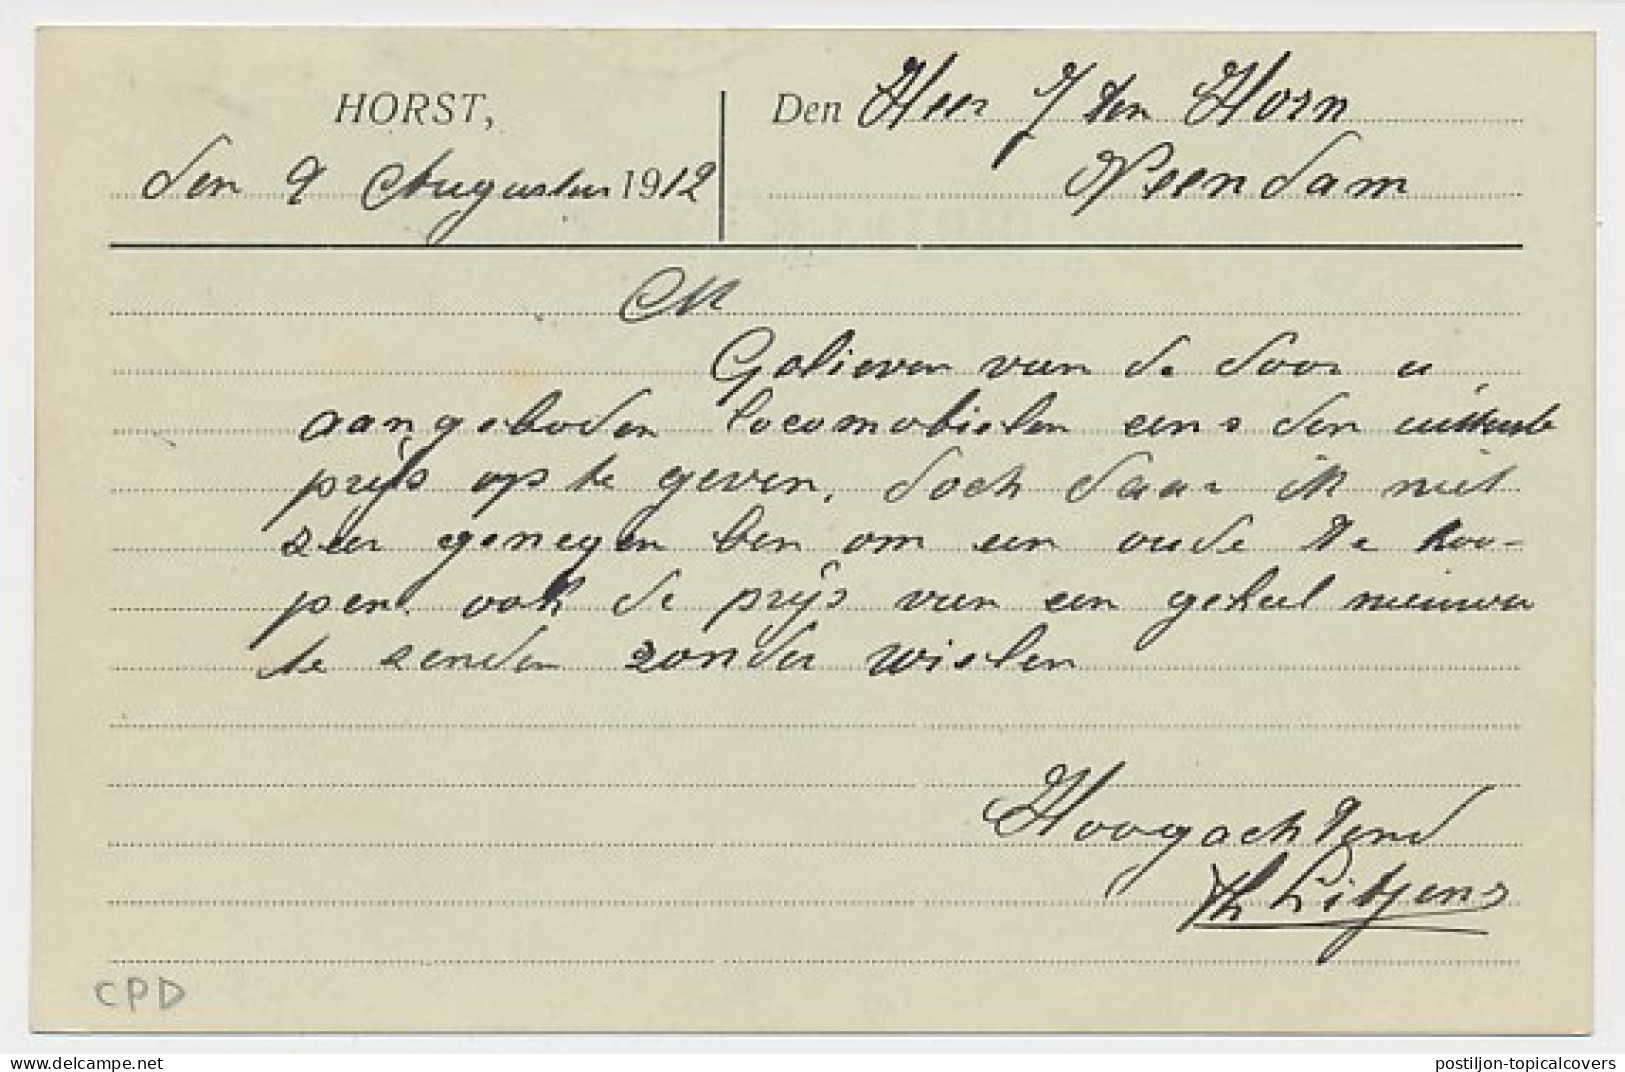 HORST,
den 9 Augustus 1912
Den Heer J ten Horn
Veendam
M
Gelieven van de door u
aangeboden locomobielen eens den uitterste
prijs op te geven, doch daar ik niet
zeer genegen ben om een oude te koo-
pen, ook de prijs van een geheel nieuwe
te zenden zonder wielen
Hoogachtend
Th Litjens
CPD
postiljon-topicalcovers
www.delcampe.net